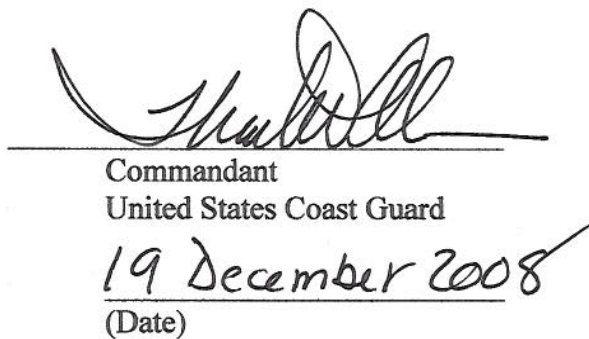 Commandant
United States Coast Guard
19 December 2008
(Date)